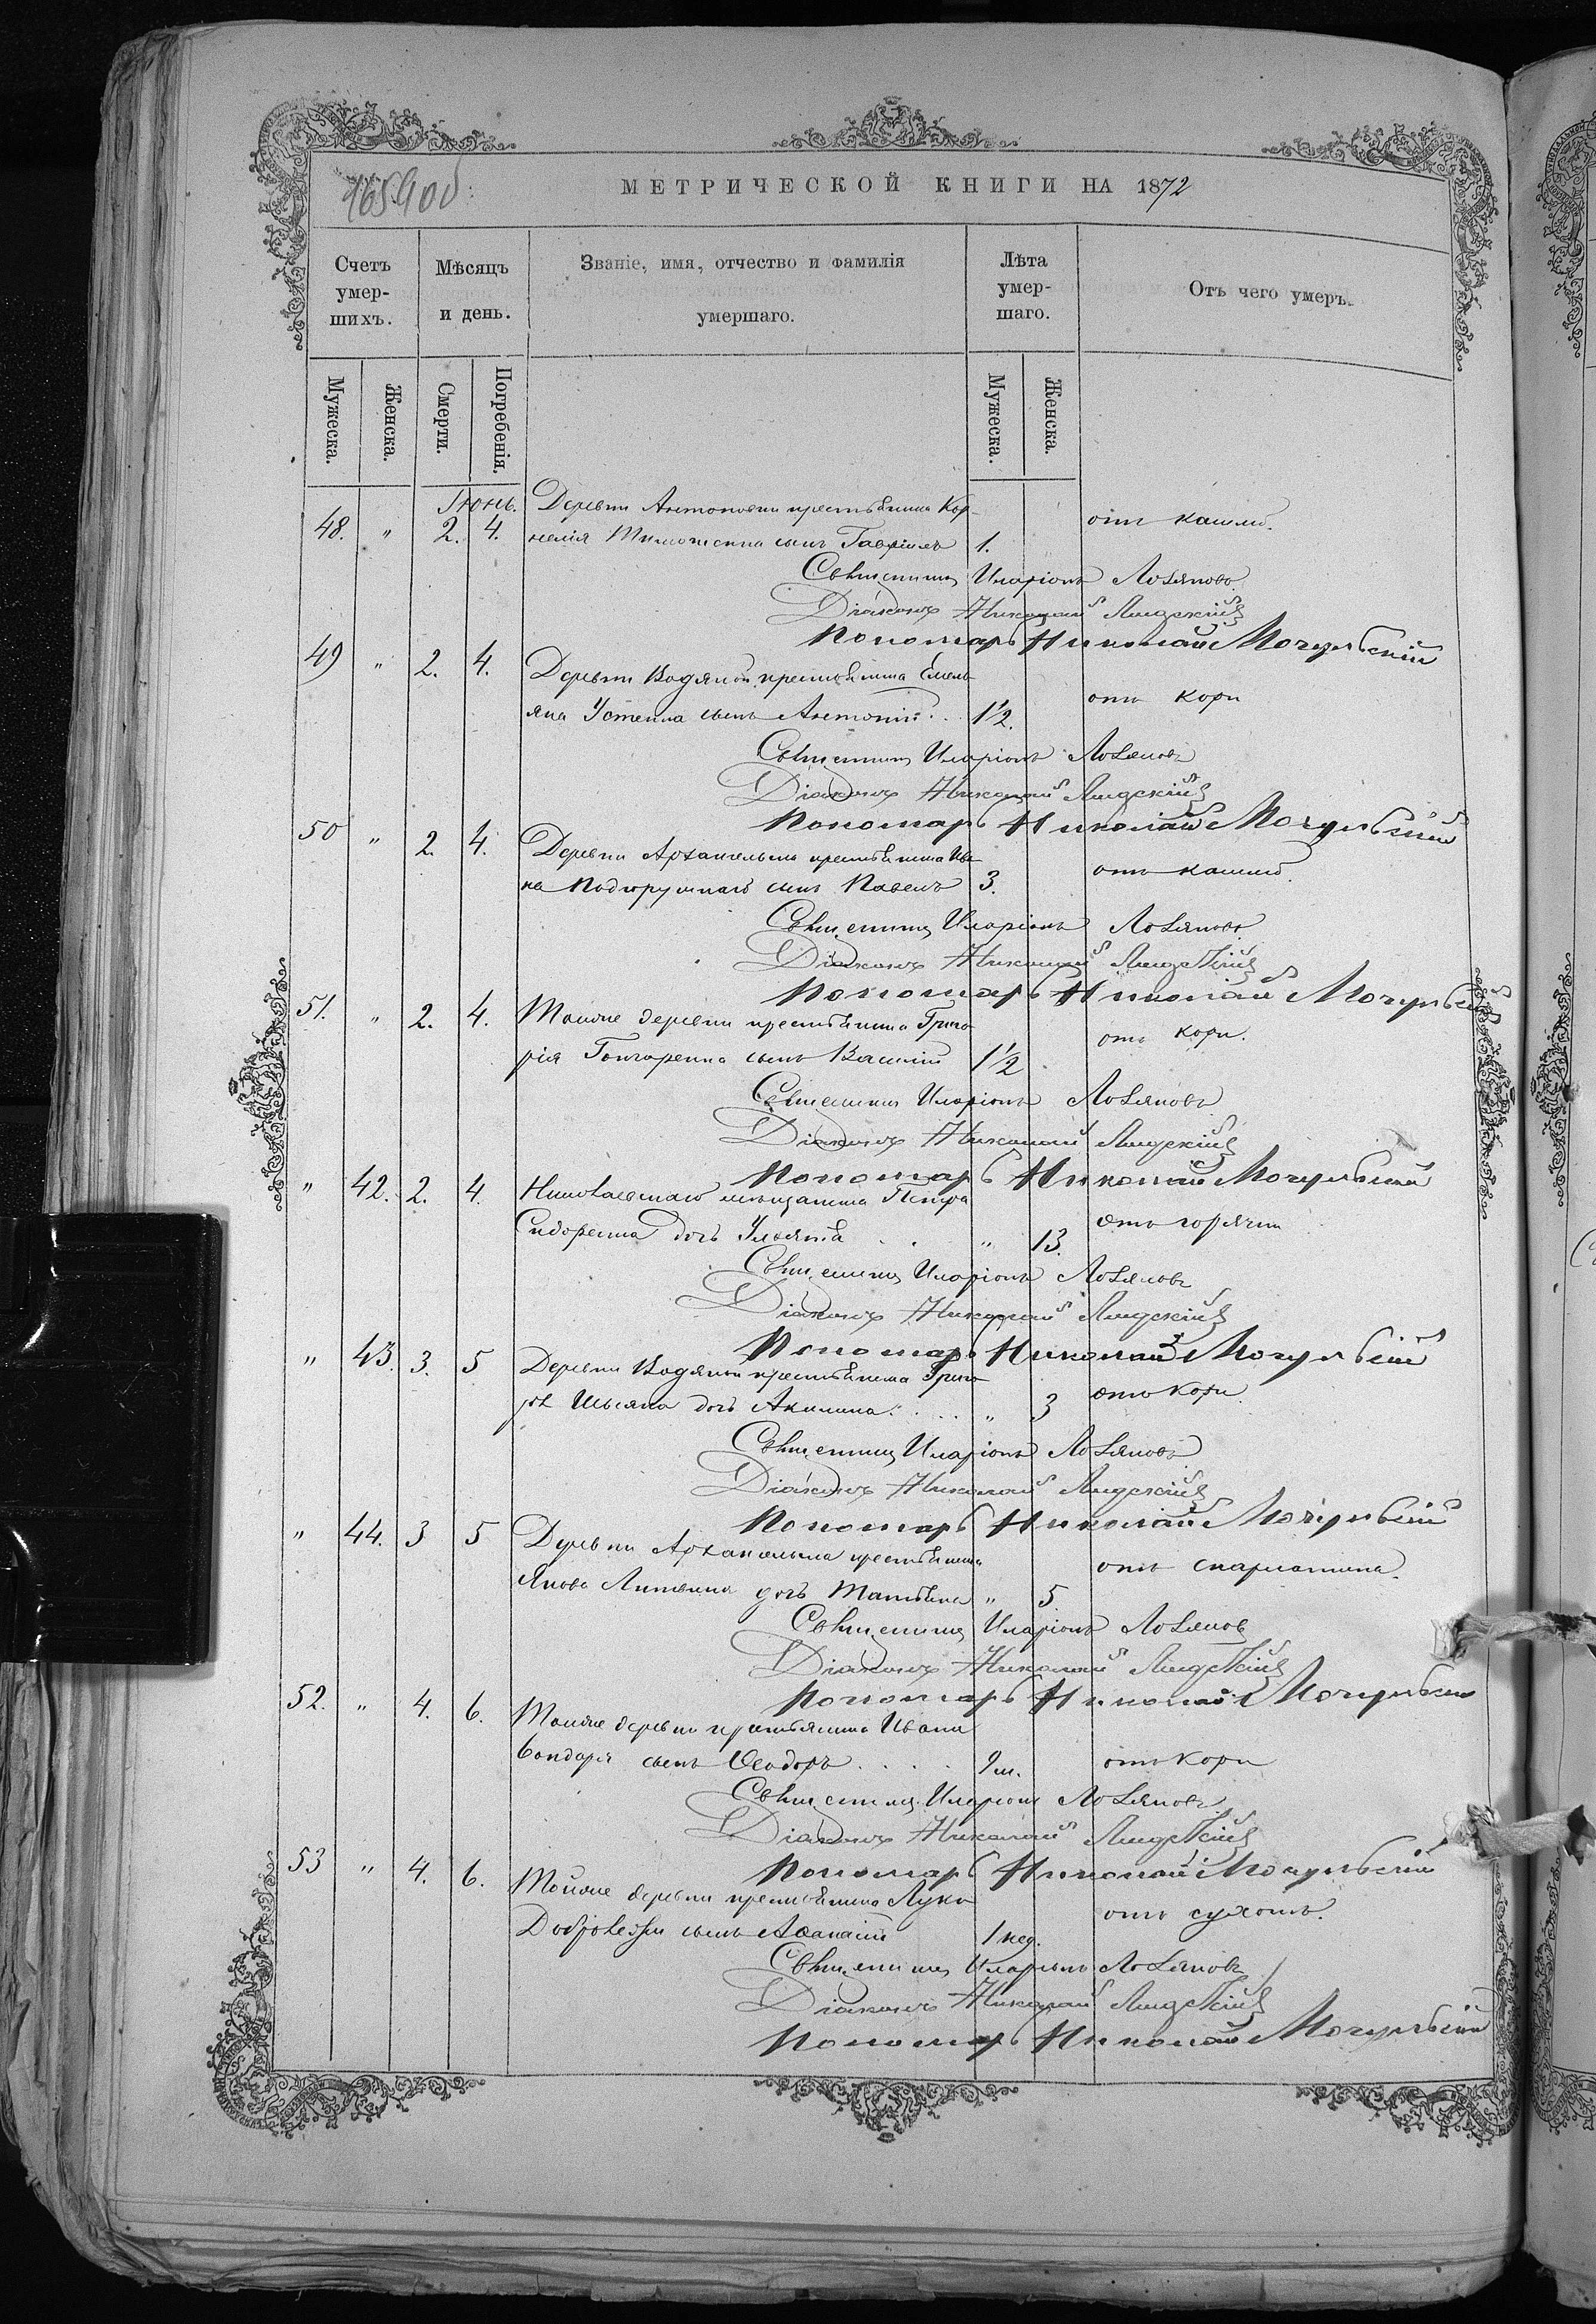 МЕТРИЧЕСКОЙ КНИГИ НА 1872
Счетъ умер-шихъ.
Мѣсяцъ и день.
Званіе, имя, отчество и фамилія умершаго.
Лѣта умер-шаго.
Отъ чего умеръ.
Мужеска.
Женска.
Смерти.
Погребенія.
Мужеска.
Женска.
Іюнь. Деревни Антоновки крестьянина Кор-
48. " 2. 4. нелія Тимошенка сынъ Гавріилъ 1. отъ кашля.
Священникъ Иларіонъ Лозяновъ
Діаконъ Николай Лидскій
Пономарь Николай Мочульскій
49 " 2. 4. Деревни Водяной крестьянина Емель-
яна Устенка сынъ Антоній 1½. отъ кори
Священникъ Иларіонъ Лозяновъ
Діаконъ Николай Лидскій
Пономарь Николай Мочульскій
50 " 2. 4. Деревни Архангельки крестьянина Ива-
на сынъ Павелъ 3. отъ кашля.
Священникъ Иларіонъ Лозяновъ
Діаконъ Николай Лидскій
Пономарь Николай Мочульскій
51. " 2. 4. Тойже деревни крестьянина Григо-
рія Гончаренка сынъ Василій 1½ отъ кори.
Священникъ Иларіонъ Лозяновъ
Діаконъ Николай Лидскій
Пономарь Николай Мочульскій
" 42. 2. 4. Николаевскаго мѣщанина Петра
Сидоренка дочь Ульяна " 13. отъ горячки
Священникъ Иларіонъ Лозяновъ
Діаконъ Николай Лидскій
Пономарь Николай Мочульскій
" 43. 3. 5 Деревни Водяной крестьянина Григо-
дочь Акилина " 3 отъ кори
Священникъ Иларіонъ Лозяновъ
Діаконъ Николай Лидскій
Пономарь Николай Мочульскій
" 44. 3 5 Деревни Архангельки крестьянина
Якова дочь Татьяна " 5. отъ скарлатина.
Священникъ Иларіонъ Лозяновъ
Діаконъ Николай Лидскій
Пономарь Николай Мочульскій
52. " 4. 6. Тойже деревни крестьянина Ивана
Бондаря сынъ Ѳеодоръ отъ кори
Священникъ Иларіонъ Лозяновъ
Діаконъ Николай Лидскій
Пономарь Николай Мочульскій
53 " 4. 6. Тойже деревни крестьянина Луки
сынъ Аѳанасій 1 нед. отъ сухотъ.
Священникъ Иларіонъ Лозяновъ
Діаконъ Николай Лидскій
Пономарь Николай Мочульскій